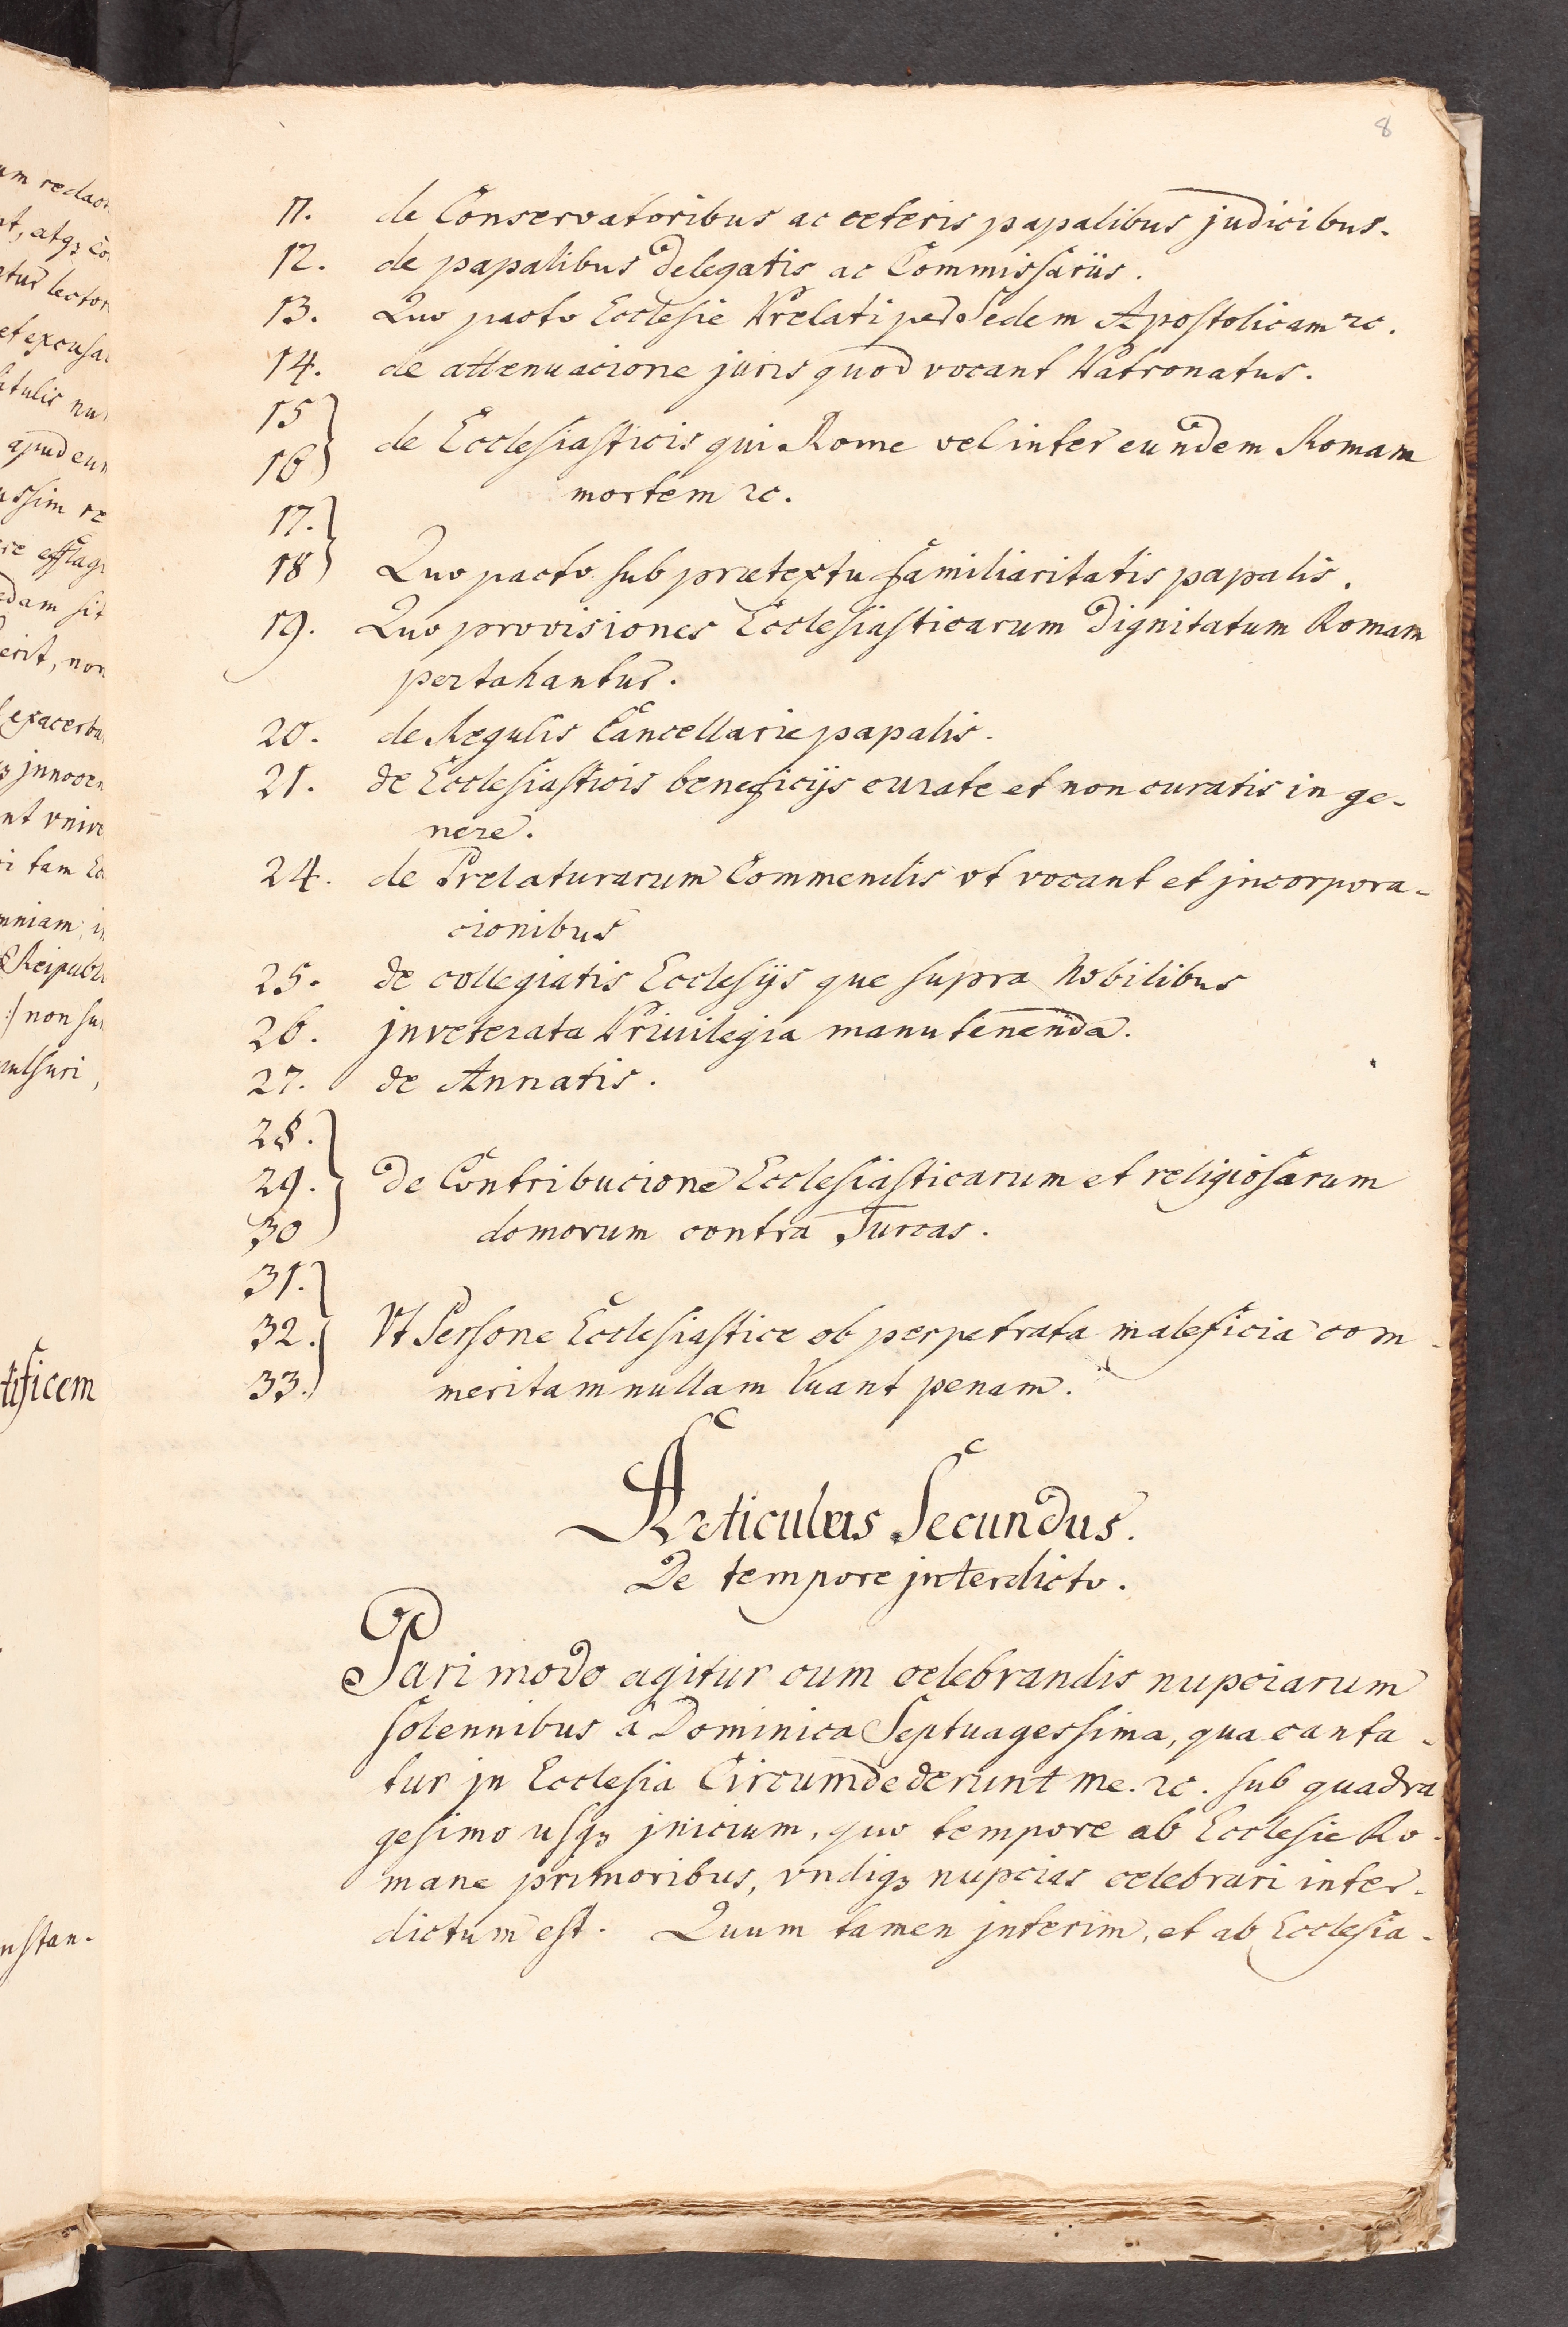 8
11. de Conservatoribus ac ceteris papalibus judicibus.
12. de papalibus delegatis ac Commissariis.
13. Quo pacto Ecclesie Prelati per Sedem Apostolicam ꝛc.
14. de attenuacione juris quod vocant Patronatus.
15
16 } de Ecclesiasticis qui Rome vel inter eundem Romam
mortem ꝛc.
17.
18 } Quo pacto sub prætextu familiaritatis papalis.
19. Quo provisiones Ecclesiasticarum dignitatum Romam
pertahantur.
20. de Regulis Cancellarie papalis.
21. de Ecclesiasticis beneficijs curate et non curatis in ge-
nere.
24. de Prelaturarum Commendis vt vocant et jncorpora-
cionibus
25. de collegiatis Ecclesijs que supra Nobilibus
26. jnveterata Privilegia manutenenda.
27. de Annatis.
28.
29. } de Contribucione Ecclesiasticarum et religiosarum
30 domorum contra Turcas.
31.
32. } Vt Persone Ecclesiastice ob perpetrata maleficia com-
33. meritam nullam luant penam.
Articulus Secundus.
De tempore jnterdicto.
Pari modo agitur cum celebrandis nupciarum
solennibus a Dominica Septuagessima, qua canta-
tur jn Ecclesia Circumdederunt me. ꝛc. sub quadra
gesimo usqꝫ jnicium, quo tempore ab Ecclesie Ro-
mane primoribus, vndiqꝫ nupcias celebrari inter-
dictum est. Quum tamen jnterim, et ab Ecclesia-